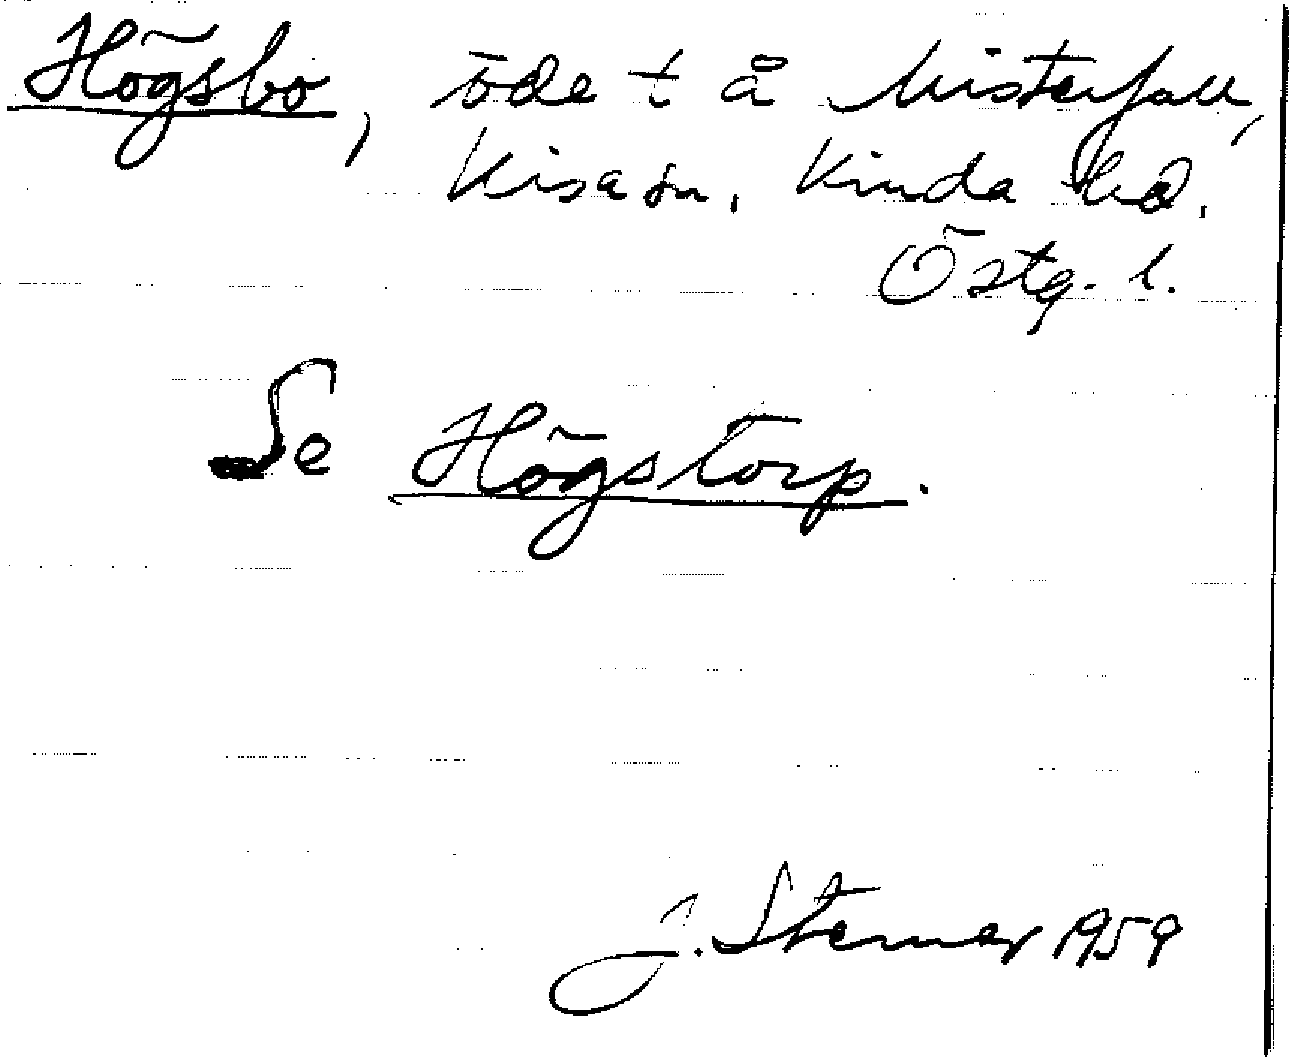 Högsbo, öde t å Misterfall,
Kisa sn. Kinda hd.
Östg. l.
Se Högstorp.
J. Sterner 1959